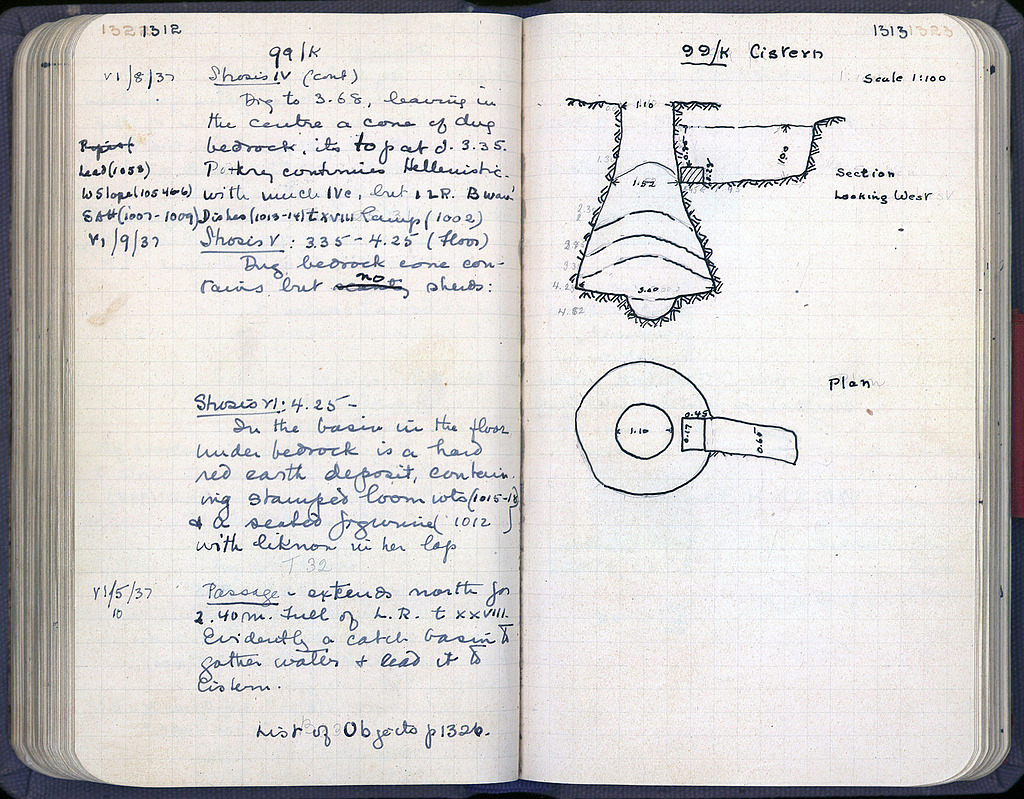 1312
99/K
VI/8/37 Strosis IV (cont)
Dug to 3.68, leaving in
the centre a cone of dug
bedrock, its top at d. 3.35.
Lead (1058) Pottery continues Hellenistic
W Slope (105 4+6) with much IVc, but 1 L.R. B
SAH (1007-1009) Dishes (1013-14) t XVIII lamp (1002)
VI/9/37 Strosis V: 3.35 - 4.25 (floor)
Dug bedrock cone con-
tains but no sherds:
Strosis VI: 4.25 -
In the basin in the floor
under bedrock is a hard
red earth deposit, contain-
ing stamped loom wts (1015-18)
+ a seated figurine (1012)
with liknon in her lap
T 32
VI/5/37 Passage - extends north for
10 2.40m. Full of L.R. t XXVIII.
Evidently a catch basin to
gather water + lead it to
Cistern.
List of Objects p 1326.
1313 1323
99/K Cistern
Scale 1:100
1.10
1.00
1.52
Section
Looking West
3.60
4.82
Plan
0.45
1.10
0.17
0.65